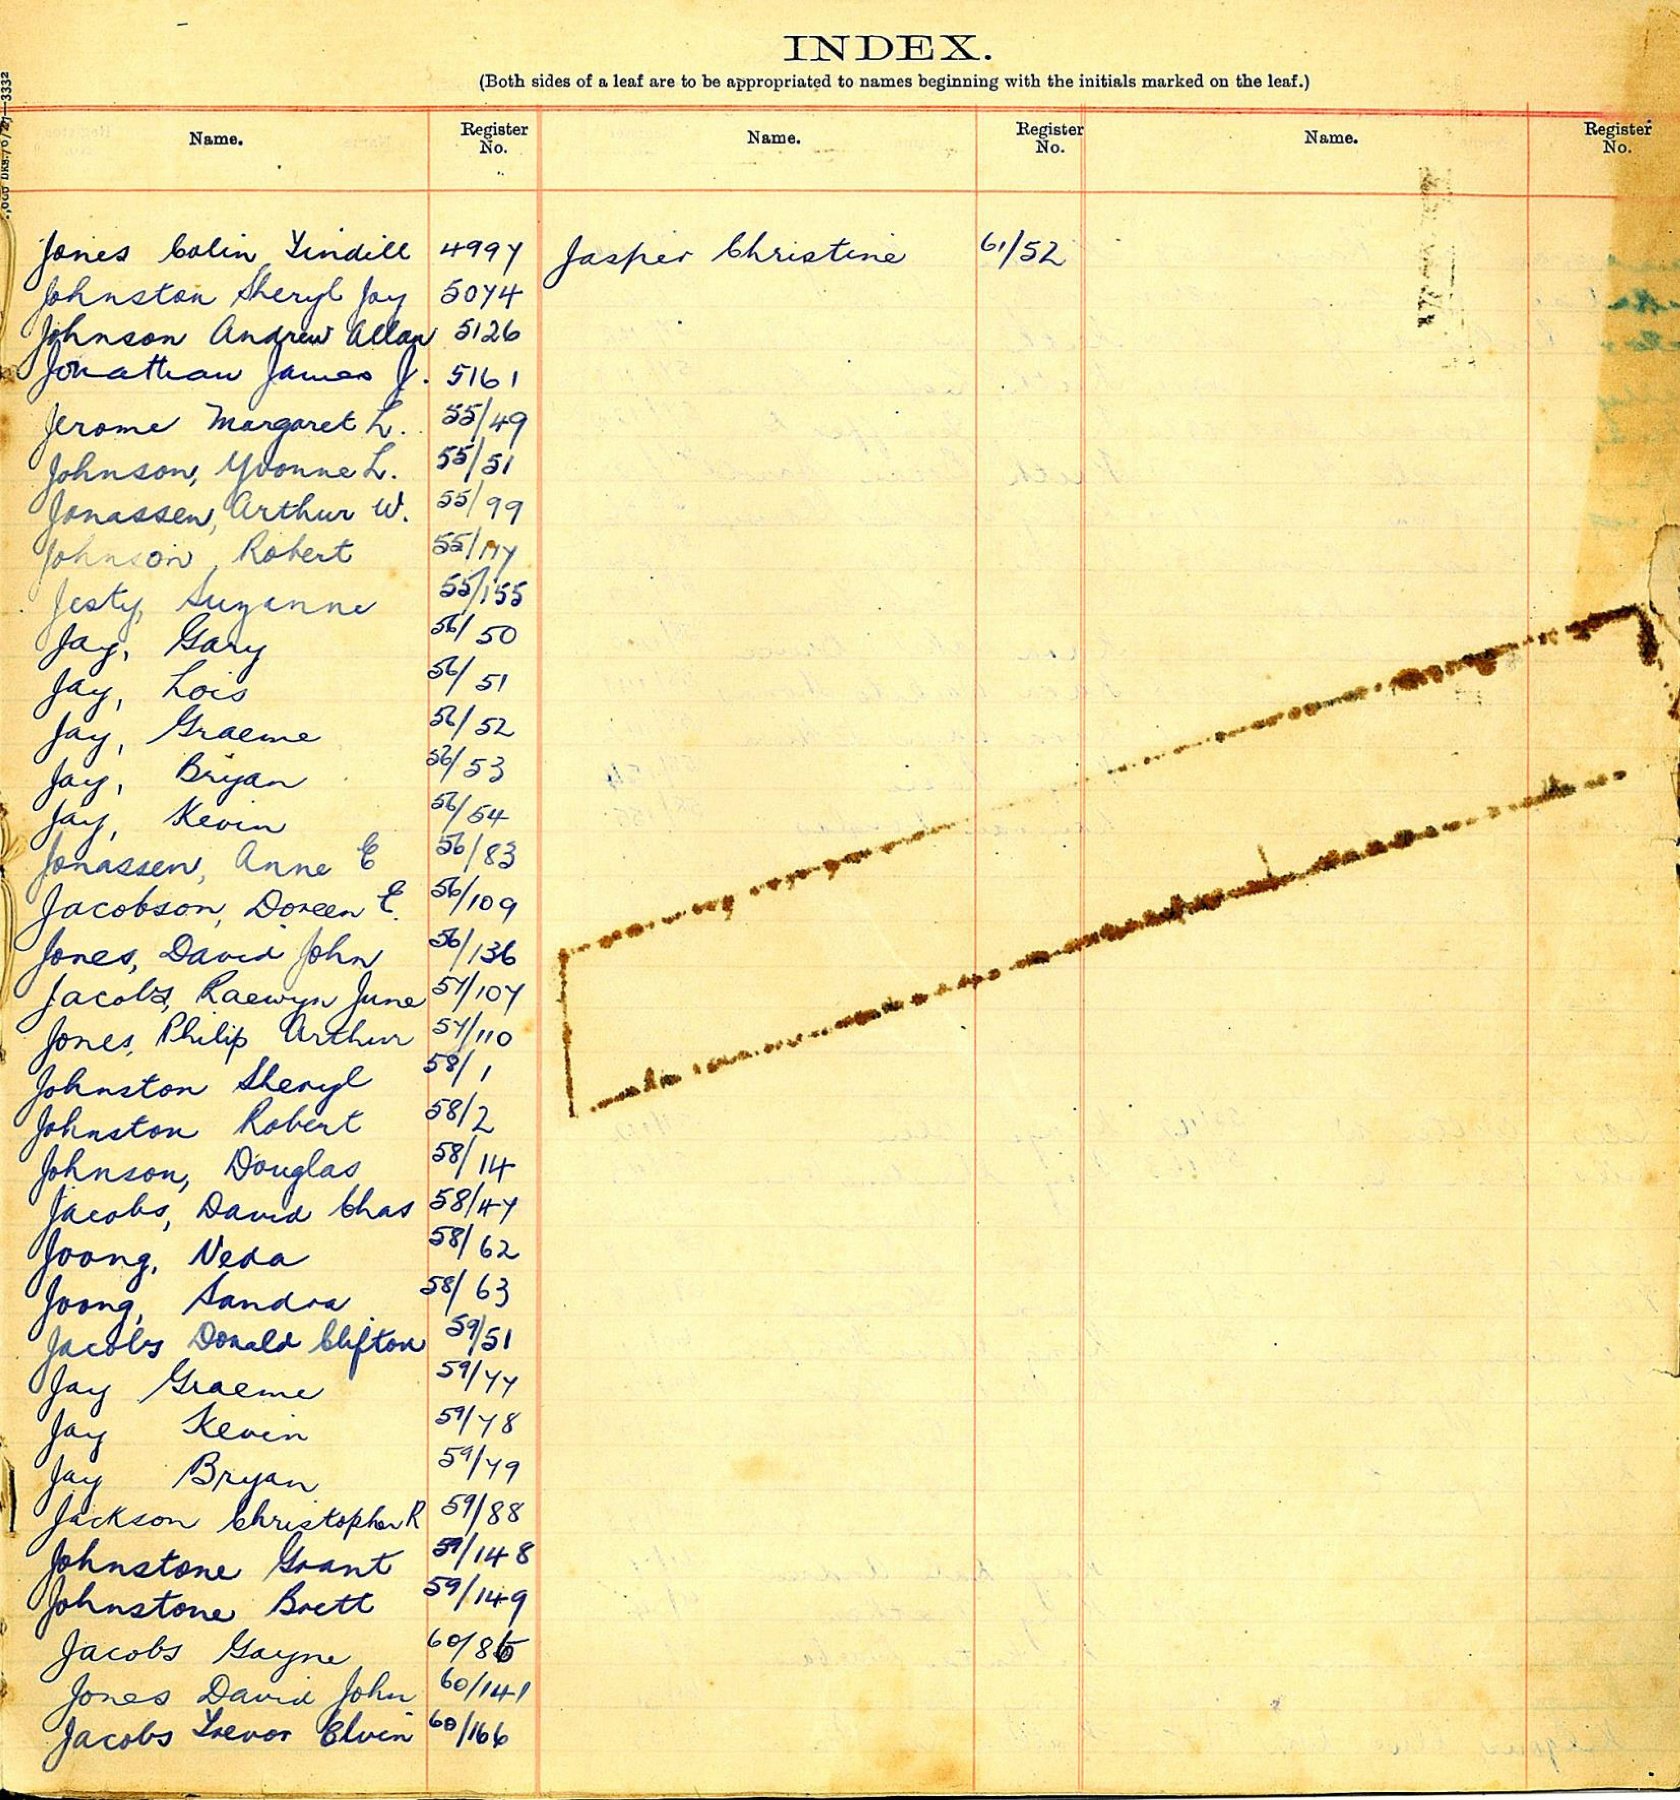 INDEX.
(Both sides of a leaf are to be appropriated to names beginning with the initials marked on the leaf.)
Name. Register No. Name. Register No. Name. Register No.
Jones Colin Tindill 4997 Jasper Christine 61/52
Johnston Sheryl Joy 5074
Johnson Andrew Allan 5126
Jonathan James J. 5161
Jerome Margaret L. 55/49
Johnson, Yvonne L. 55/51
Jonassen, Arthur W. 55/99
Johnson, Robert 55/117
Jesty, Suzanne 55/155
Jay, Gary 56/50
Jay, Lois 56/51
Jay, Graeme 56/52
Jay, Bryan 56/53
Jay, Kevin 56/54
Jonassen, Anne E 56/83
Jacobson, Doreen E. 56/109
Jones, David John 56/136
Jacobs, Raewyn June 57/107
Jones, Philip Arthur 57/110
Johnston Sheryl 58/1
Johnston Robert 58/2
Johnson, Douglas 58/14
Jacobs, David Chas 58/47
Joong, Neda 58/62
Joong, Sandra 58/63
Jacobs Donald Clifton 59/51
Jay Graeme 59/77
Jay Kevin 59/78
Jay Bryan 59/79
Jackson Christopher R 59/88
Johnstone Grant 59/148
Johnstone Brett 59/149
Jacobs Gayne
Jones David John 60/141
Jacobs Trevor Elvin 60/166